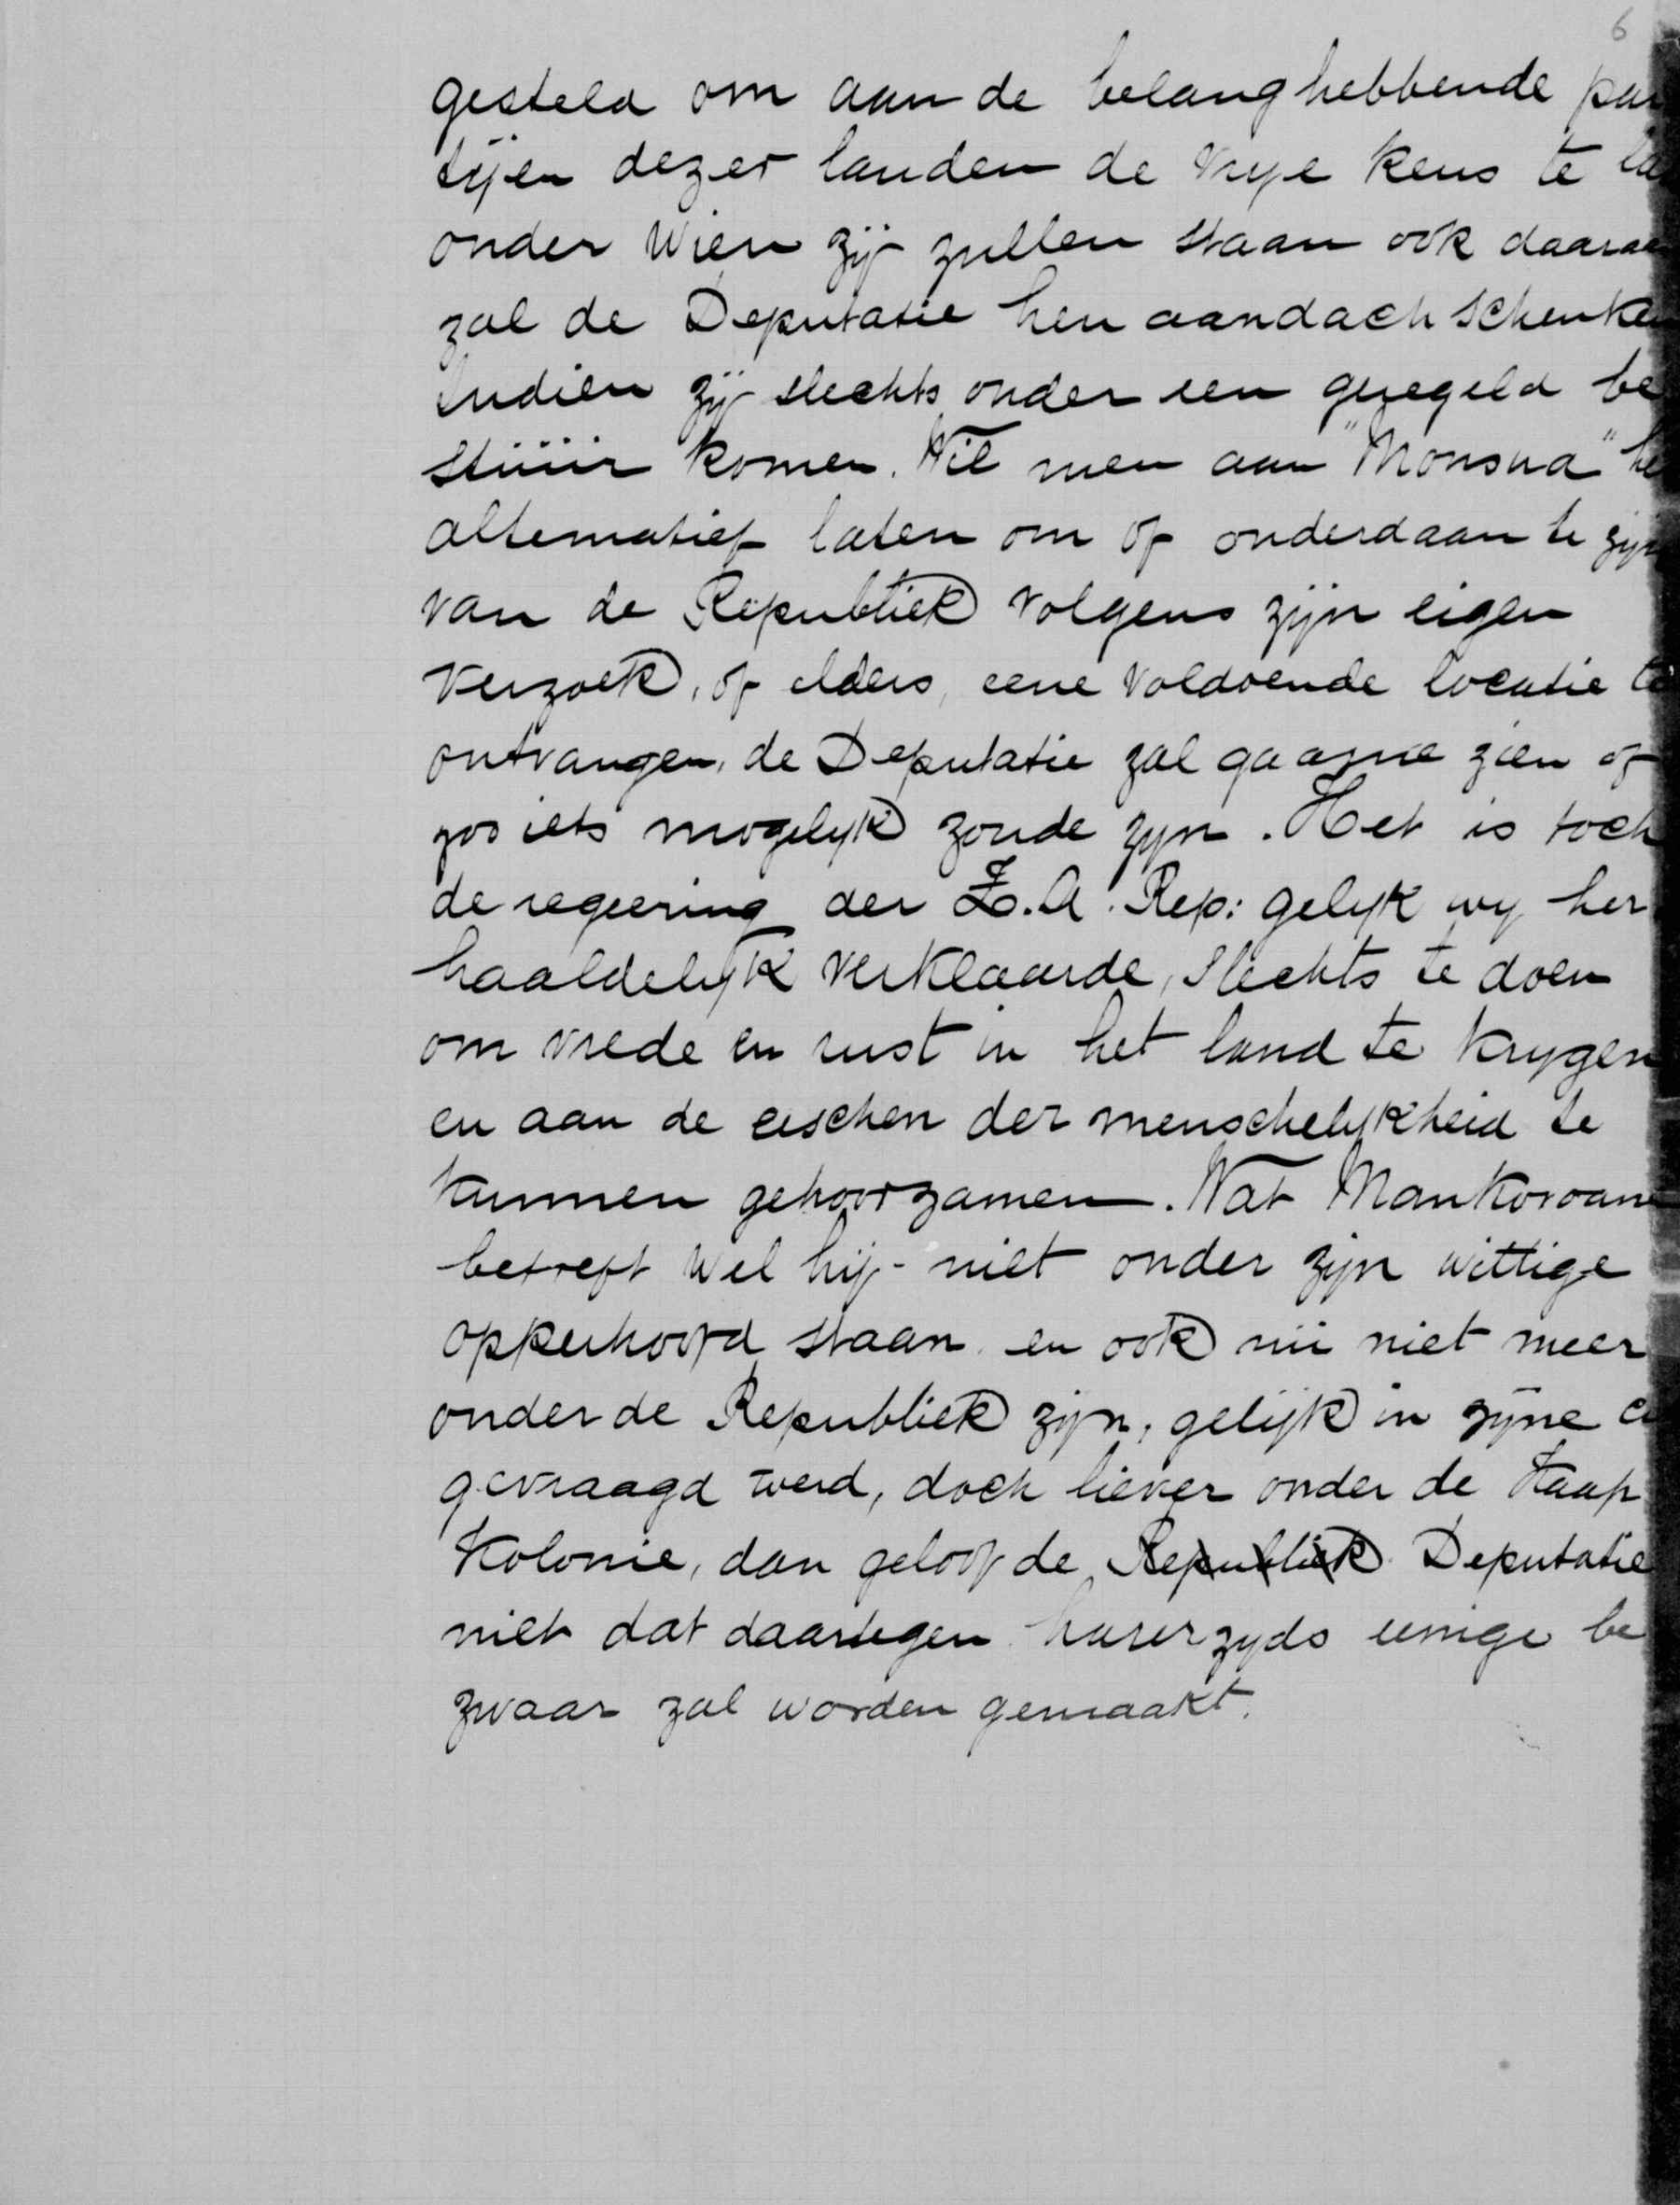 6
gesteld om aan de belanghebbende par
tijen dezer landen de vrije keus te la
onder wien zij zullen staan ook daaraan
zal de Deputatie hen aandach schenken
indien zij slechts onder een geregeld be
stuur komen. Wil men aan "Monsua" he
alternatief laten om of onderdaan te zijn
van de Republiek volgens zijn eigen
verzoek, of elders, eene voldoende locatie te
ontvangen, de Deputatie zal gaarne zien of
zoo iets mogelyk zoude zyn. Het is toch
de regeering der Z.A. Rep: gelyk wy her
haaldelyk verklaarde, slechts te doen
om vrede en rust in het land te krygen
en aan de eischen der menschelykheid te
kunnen gehoorzamen. Wat Mankoroane
betreft wel hij niet onder zyn wittige
opperhoofd staan en ook nu niet meer
onder de Republiek zijn, gelijk in zyne
gevraagd werd, doch liever onder de Kaap
Kolonie, dan geloof de Republiek Deputatie
niet dat daartegen harerzyds eenige be
zwaar zal worden gemaakt.